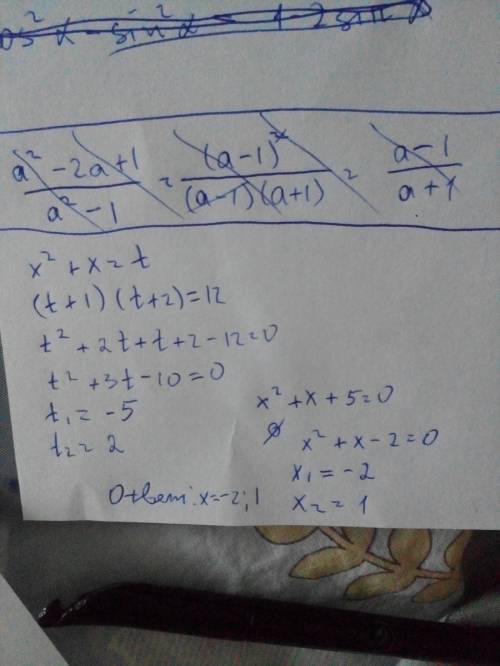 cos² α - sin² α = 1 - 2 sin² α
a² - 2a + 1 / a² - 1 = (a-1)² / (a-1)(a+1) = a - 1 / a + 1
x² + x = t
(t+1)(t+2) = 12
t² + 2t + t + 2 - 12 = 0
t² + 3t - 10 = 0
t₁ = -5
t₂ = 2
x² + x + 5 = 0
∅
x² + x - 2 = 0
x₁ = -2
x₂ = 1
Ответ: x = -2; 1